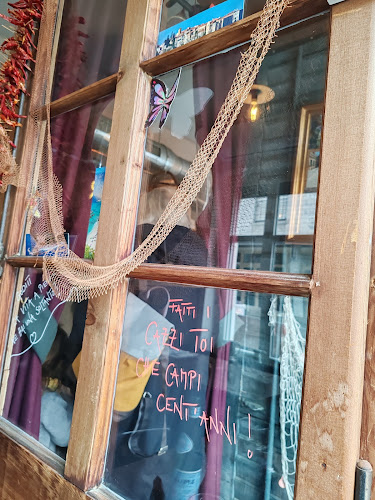 VITA
FATTI I
CAZZI TOI
CHE CAMPI
CENT'ANNI!